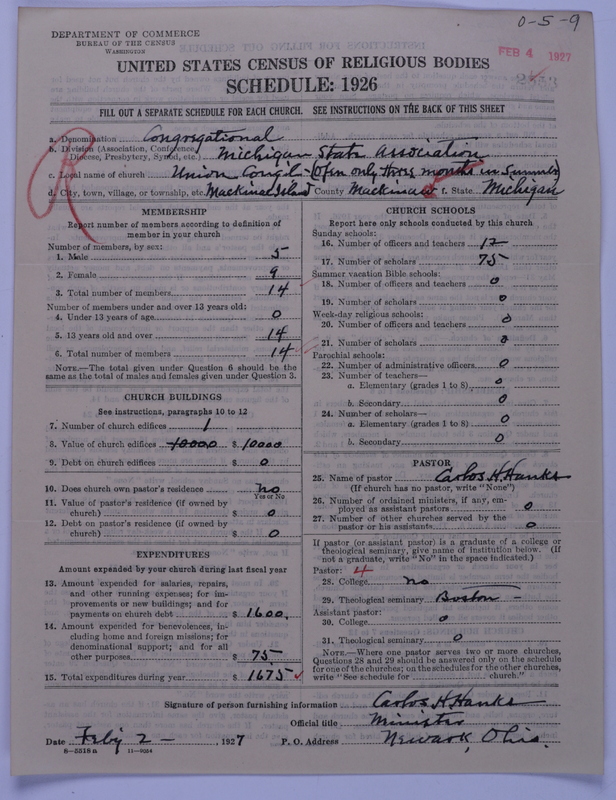 O-5-9
DEPARTMENT OF COMMERCE
BUREAU OF THE CENSUS
WASHINGTON
FEB 4 1927
UNITED STATES CENSUS OF RELIGIOUS BODIES
SCHEDULE: 1926
FILL OUT A SEPARATE SCHEDULE FOR EACH CHURCH. SEE INSTRUCTIONS ON THE BACK OF THIS SHEET
R
a. Denomination Congregational
b. Division (Association, Conference, Diocese, Presbytery, Synod, etc.) Michigan State Association
c. Local name of church Union Congl - (Open only three months in Summer)
d. City, town, village, or township, etc. Mackinac Island County Mackinaw f. State Michigan
MEMBERSHIP
Report number of members according to definition of
member in your church
Number of members, by sex:
1. Male 5
2. Female 9
3. Total number of members 14
Number of members under and over 13 years old:
4. Under 13 years of age 0
5. 13 years old and over 14
6. Total number of members 14
NOTE.—The total given under Question 6 should be the
same as the total of males and females given under Question 3.
CHURCH BUILDINGS
See instructions, paragraphs 10 to 12
7. Number of church edifices 1
8. Value of church edifices 10000 $ 10000
9. Debt on church edifices $ 0
10. Does church own pastor's residence no
Yes or No
11. Value of pastor's residence (if owned by
church) $ 0
12. Debt on pastor's residence (if owned by
church) $ 0
EXPENDITURES
Amount expended by your church during last fiscal year
13. Amount expended for salaries, repairs,
and other running expenses; for im-
provements or new buildings; and for
payments on church debt $ 1600.
14. Amount expended for benevolences, in-
cluding home and foreign missions; for
denominational support; and for all
other purposes $ 75
15. Total expenditures during year $ 1675
CHURCH SCHOOLS
Report here only schools conducted by this church
Sunday schools:
16. Number of officers and teachers 12
17. Number of scholars 75
Summer vacation Bible schools:
18. Number of officers and teachers 0
19. Number of scholars 0
Week-day religious schools:
20. Number of officers and teachers 0
21. Number of scholars 0
Parochial schools:
22. Number of administrative officers 0
23. Number of teachers—
a. Elementary (grades 1 to 8) 0
b. Secondary 0
24. Number of scholars—
a. Elementary (grades 1 to 8) 0
b. Secondary 0
PASTOR
25. Name of pastor Carlos H. Hanks
(If church has no pastor, write "None")
26. Number of ordained ministers, if any, em-
ployed as assistant pastors 0
27. Number of other churches served by the
pastor or his assistants 0
If pastor (or assistant pastor) is a graduate of a college or
theological seminary, give name of institution below. (If
not a graduate, write "No" in the space indicated.)
Pastor: 4
28. College no
29. Theological seminary Boston -
Assistant pastor:
30. College 0
31. Theological seminary 0
NOTE.—Where one pastor serves two or more churches,
Questions 28 and 29 should be answered only on the schedule
for one of the churches; on the schedules for the other churches,
write "See schedule for church."
Signature of person furnishing information Carlos H. Hanks
Official title Minister
Date Feby 2 - 1927 P. O. Address Newark, Ohio.
8-5318 a 11-9034